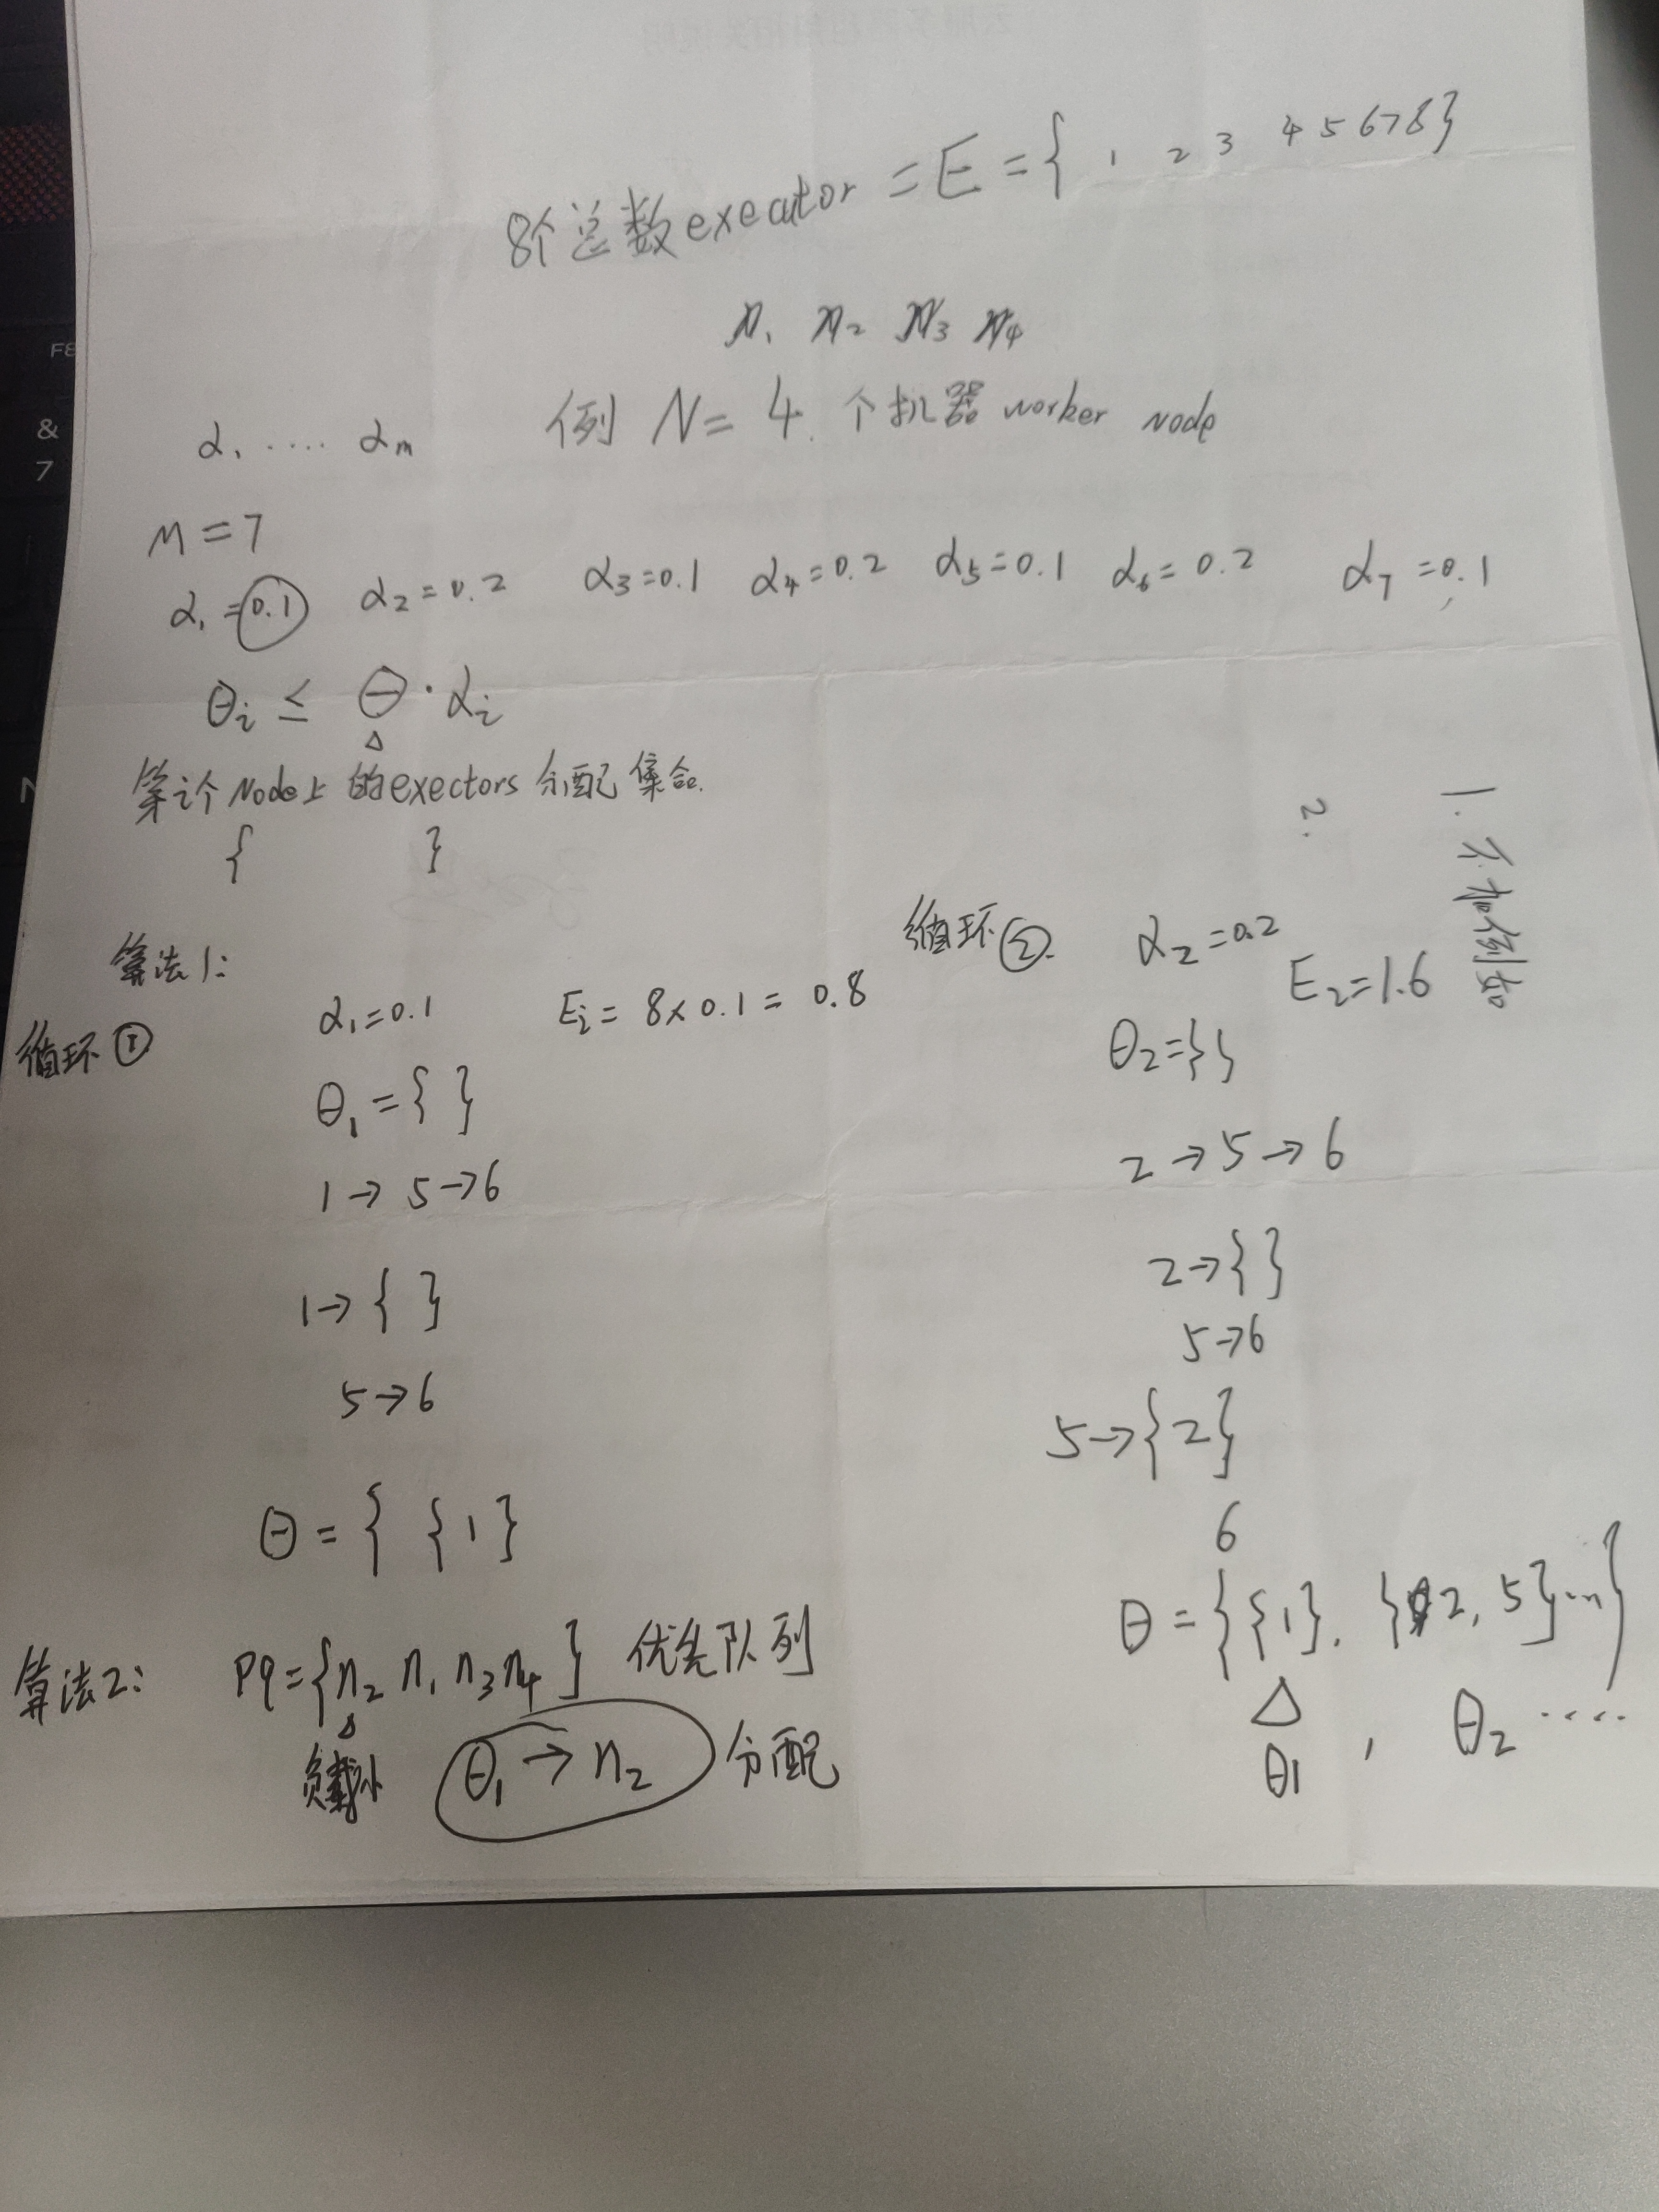 8个总数executor = E = { 1 2 3 4 5 6 7 8 }
n₁ n₂ n₃ n₄
例 N = 4 个机器 worker node
α₁ ···· αm
M = 7
α₁ = 0.1 α₂ = 0.2 α₃ = 0.1 α₄ = 0.2 α₅ = 0.1 α₆ = 0.2 α₇ = 0.1
θi ≤ Θ · αi
△
第i个Node上的exectors分配集合.
{ }
1. 不加倒吊
2.
算法1:
循环①
α₁ = 0.1 Ei = 8 × 0.1 = 0.8
θ₁ = { }
1 → 5 → 6
1 → { }
5 → 6
Θ = { {1}
循环②
α₂ = 0.2
E₂ = 1.6
θ₂ = { }
2 → 5 → 6
2 → { }
5 → 6
5 → {2}
6
Θ = { {1}, {2, 5} ... }
△
θ1 , θ₂ ····
算法2: Pq = { n₂ n₁ n₃ n₄ } 优先队列
△
负载小 θ₁ → n₂ 分配
F8
&
7
N